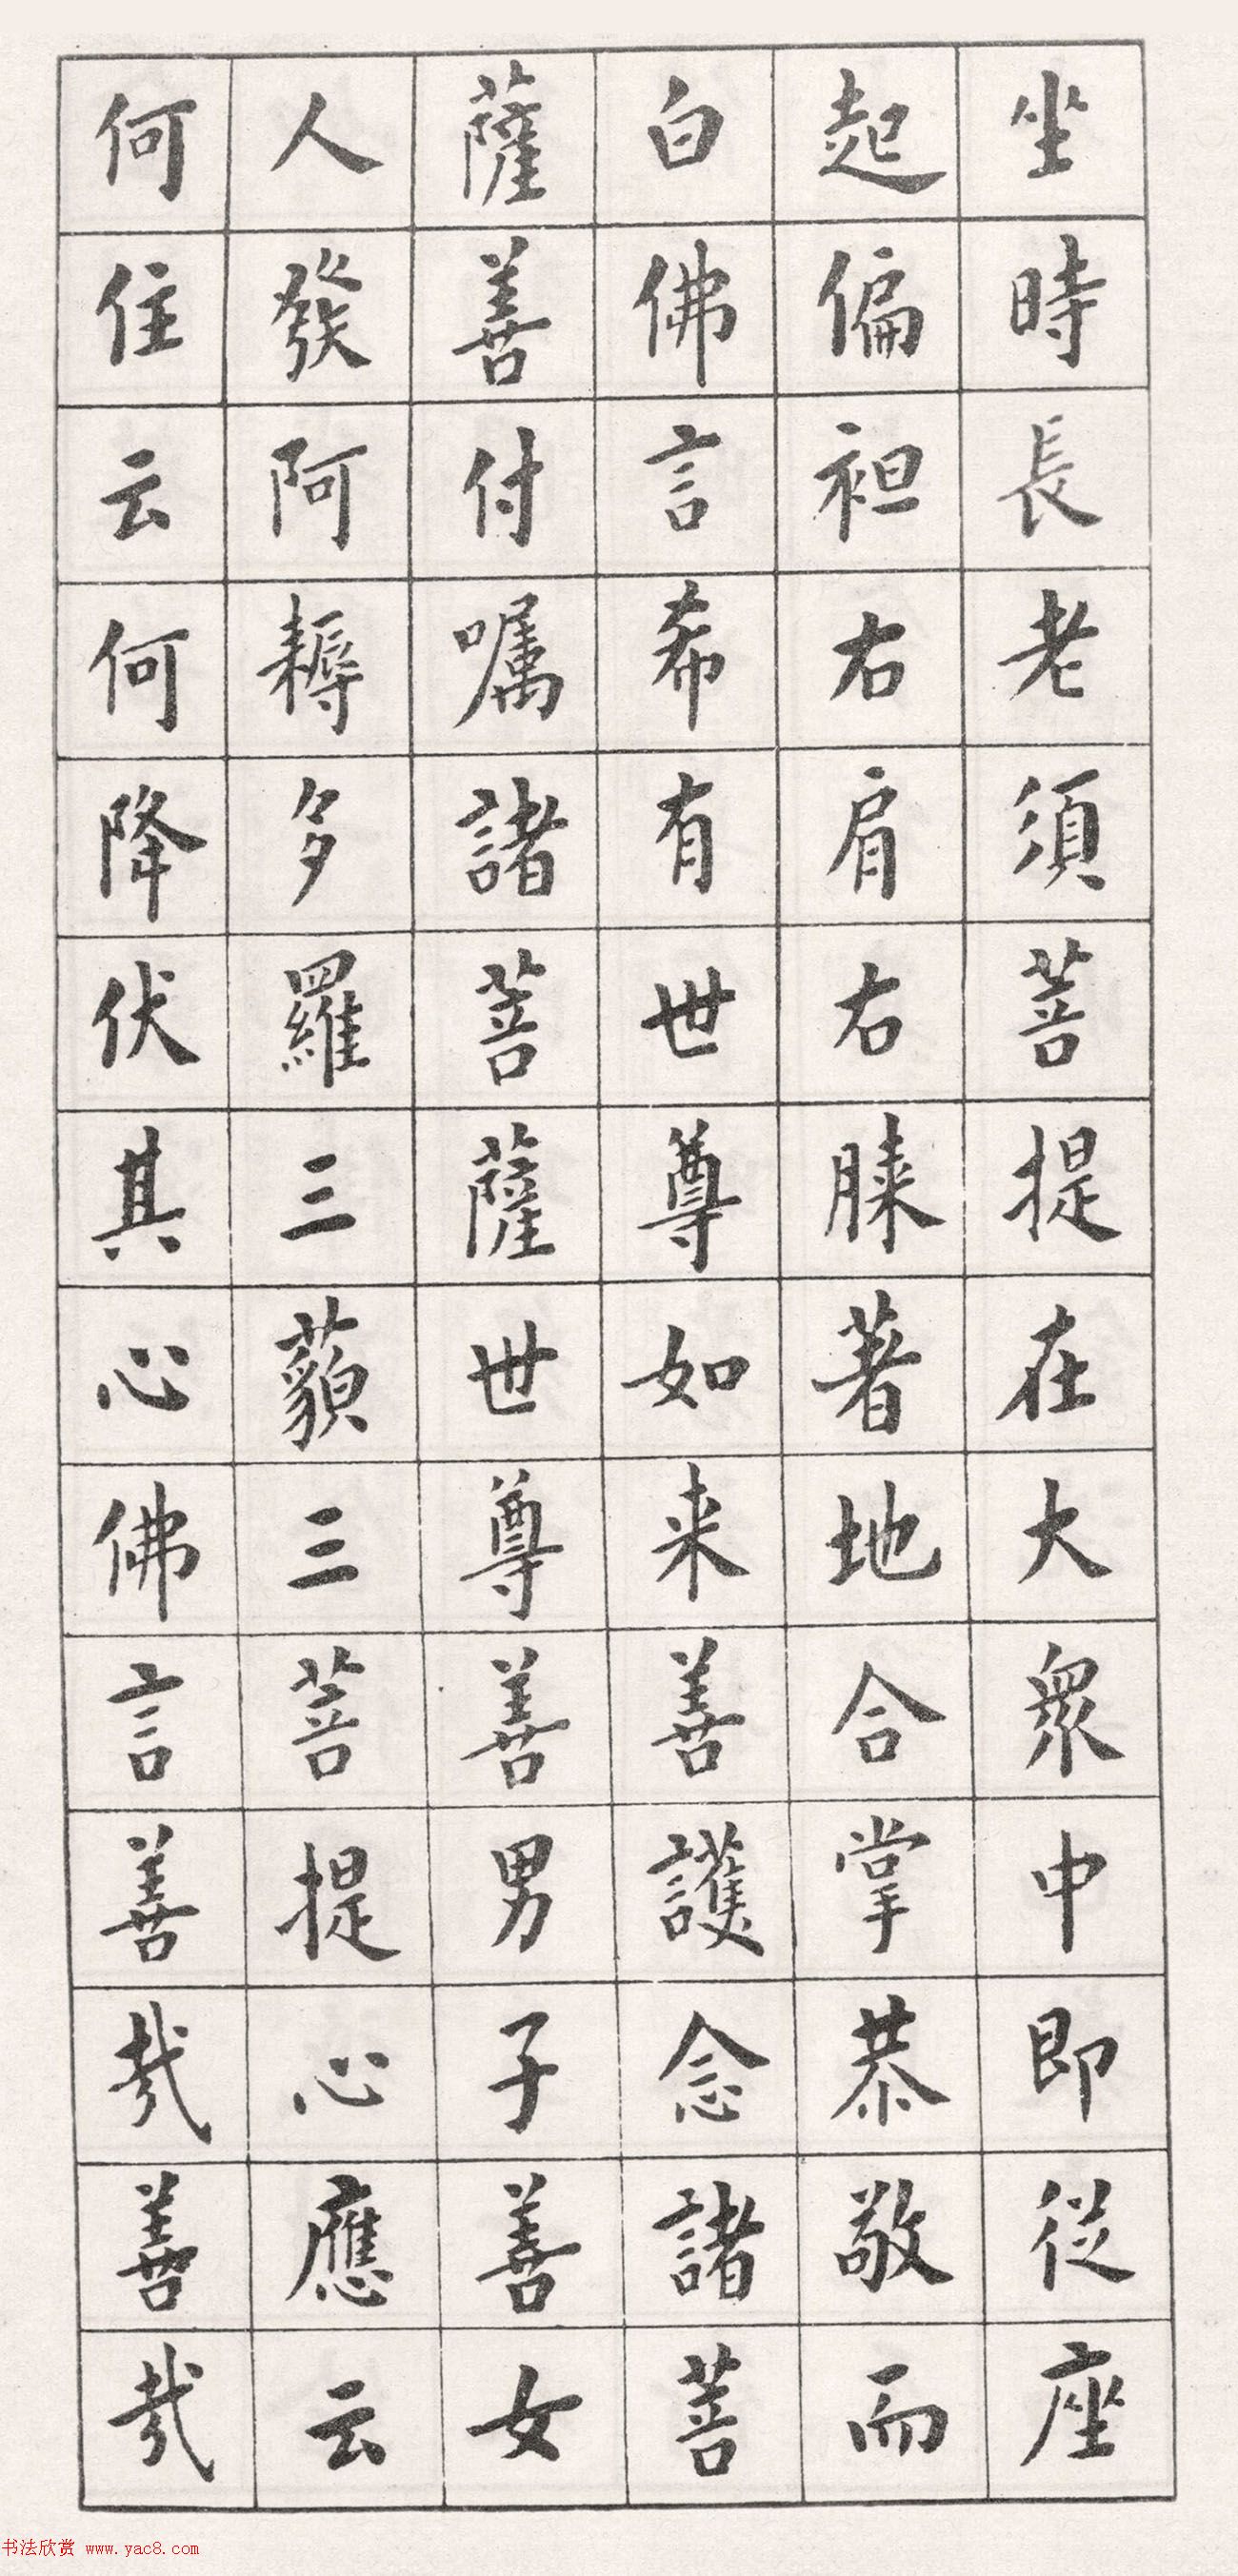 坐時長老須菩提在大衆中即從座
起偏袒右肩右膝著地合掌恭敬而
白佛言希有世尊如来善護念諸菩
薩善付嘱諸菩薩世尊善男子善女
人發阿耨多羅三藐三菩提心應云
何住云何降伏其心佛言善哉善哉
书法欣赏 www.yac8.com